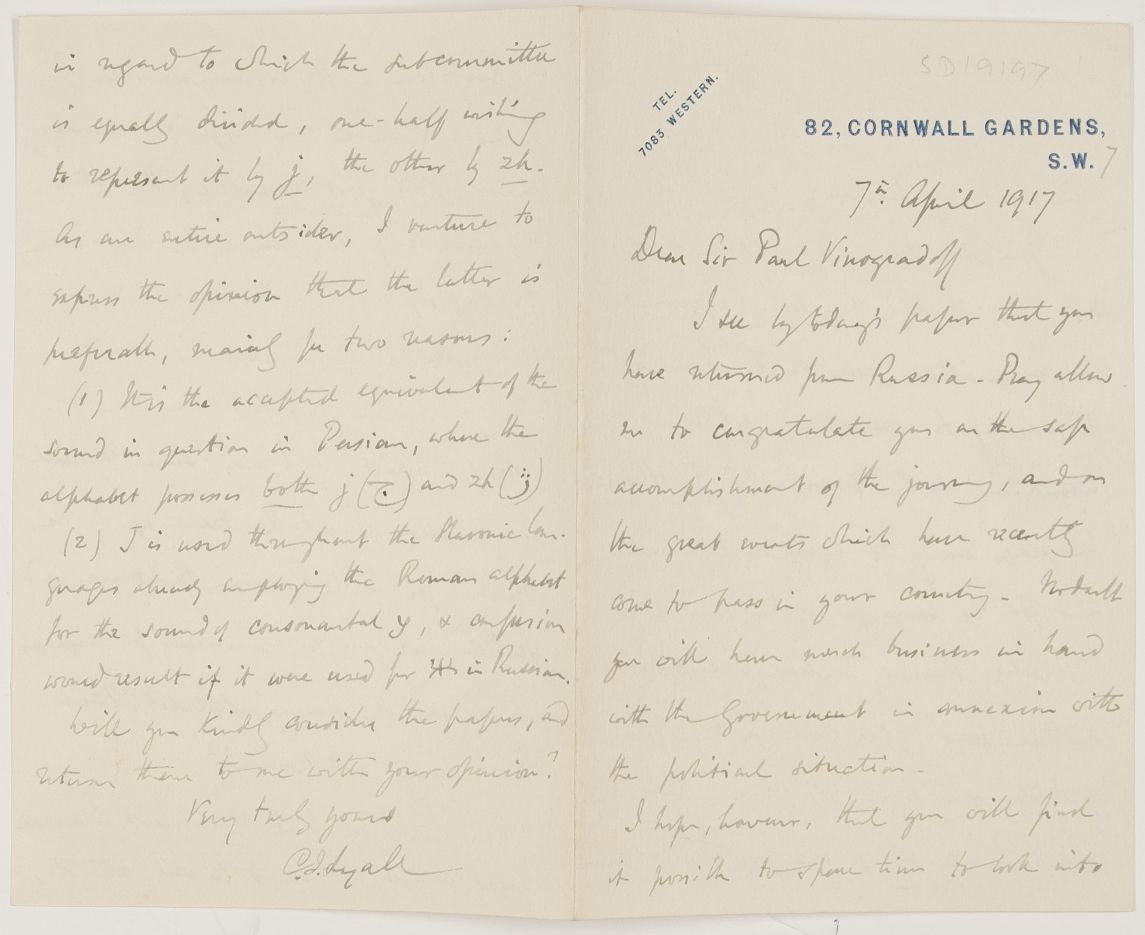 SD19197
TEL.
7083 WESTERN.
82, CORNWALL GARDENS,
S.W. 7
7th April 1917
Dear Sir Paul Vinogradoff
I see by today's paper that you
have returned from Russia - Pray allow
me to congratulate you on the safe
accomplishment of the journey, and on
the great events which have recently
come to pass in your country - No doubt
you will have much business in hand
with the Government in connexion with
the political situation -
I hope, however, that you will find
it possible to spare time to look into
in regard to which the subcommittee
is equally divided, one-half wishing
to represent it by j, the other by zh.
As an entire outsider, I venture to
express the opinion that the latter is
preferable, mainly for two reasons:
(1) It is the accepted equivalent of the
sound in question in Persian, where the
alphabet possesses both j (ج) and zh (ژ)
(2) J is used throughout the Slavonic lan-
guages already employing the Roman alphabet
for the sound of consonantal y, & confusion
would result if it were used for ж in Russian.
Will you kindly consider the papers, and
return them to me with your opinion?
Very truly yours
C.J. Lyall